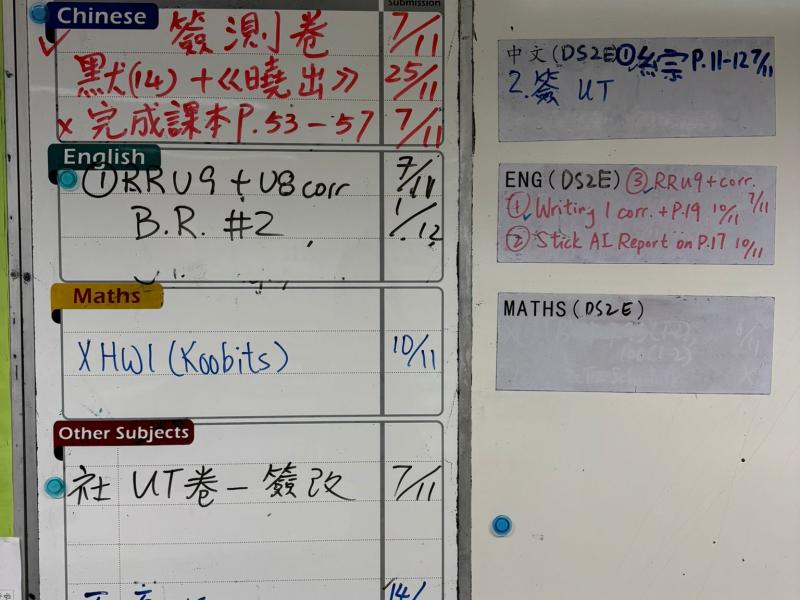 Submission
Chinese
簽測卷 7/11
默(14)+《曉出》 25/11
x 完成課本P.53-57 7/11
English
①RRU9+U8corr 7/11
B.R. #2 1/12
Maths
X HW1(Koobits) 10/11
Other Subjects
社 UT卷-簽改 7/11
14/
中文(DS2E)① P.11-12 7/11
2.簽 UT
ENG(DS2E) ③RRU9+corr. 7/11
①Writing 1 corr.+P.19 10/11
②Stick AI Report on P.17 10/11
MATHS(DS2E)